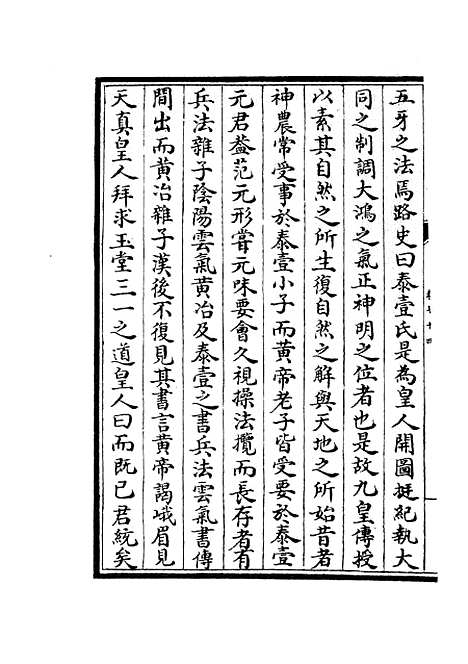 五牙之法焉路史曰泰壹氏是為皇人開圖挺紀執大
同之制調大鴻之氣正神明之位者也是故九皇傳授
以素其自然之所生復自然之解與天地之所始昔者
神農常受事於泰壹小子而黃帝老子皆受要於泰壹
元君蓋范元形嘗元味要會久視操法攬而長存者有
兵法雜子陰陽雲氣黃冶及泰壹之書兵法雲氣書傳
間出而黃冶雜子漢後不復見其書言黃帝謁峨眉見
天真皇人拜求玉堂三一之道皇人曰而既已君統矣